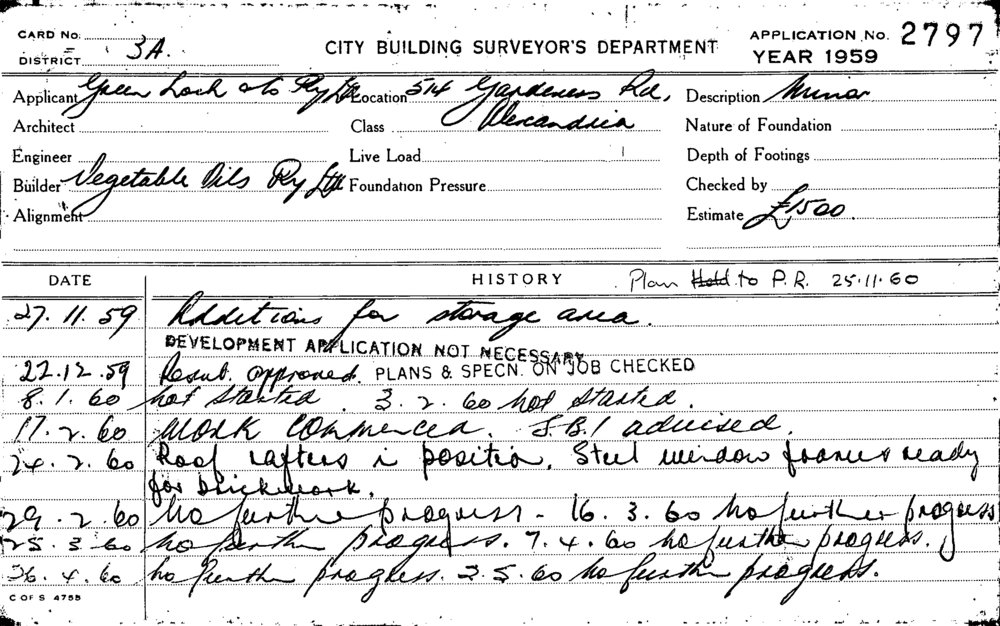 CARD No.
DISTRICT 3A.
CITY BUILDING SURVEYOR'S DEPARTMENT
APPLICATION No. 2797
YEAR 1959
Applicant Green Pty Ltd Location 514 Gardeners Rd, Description Minor
Architect Class Alexandria Nature of Foundation
Engineer Live Load Depth of Footings
Builder Vegetable Oils Pty Ltd Foundation Pressure Checked by
Alignment Estimate £1500.
DATE HISTORY Plan Held to P.R. 25.11.60
27.11.59 Additions for storage area.
DEVELOPMENT APPLICATION NOT NECESSARY
22.12.59 Resub. approved. PLANS & SPECN. ON JOB CHECKED
8.1.60 not started. 3.2.60 not started.
17.2.60 Work commenced. S.B.I advised.
24.2.60 Roof rafters in position. Steel window frames ready
for brickwork.
29.2.60 no further progress - 16.3.60 no further progress
25.3.60 no further progress. 7.4.60 no further progress.
26.4.60 no further progress. 2.5.60 no further progress.
C OF S 4755